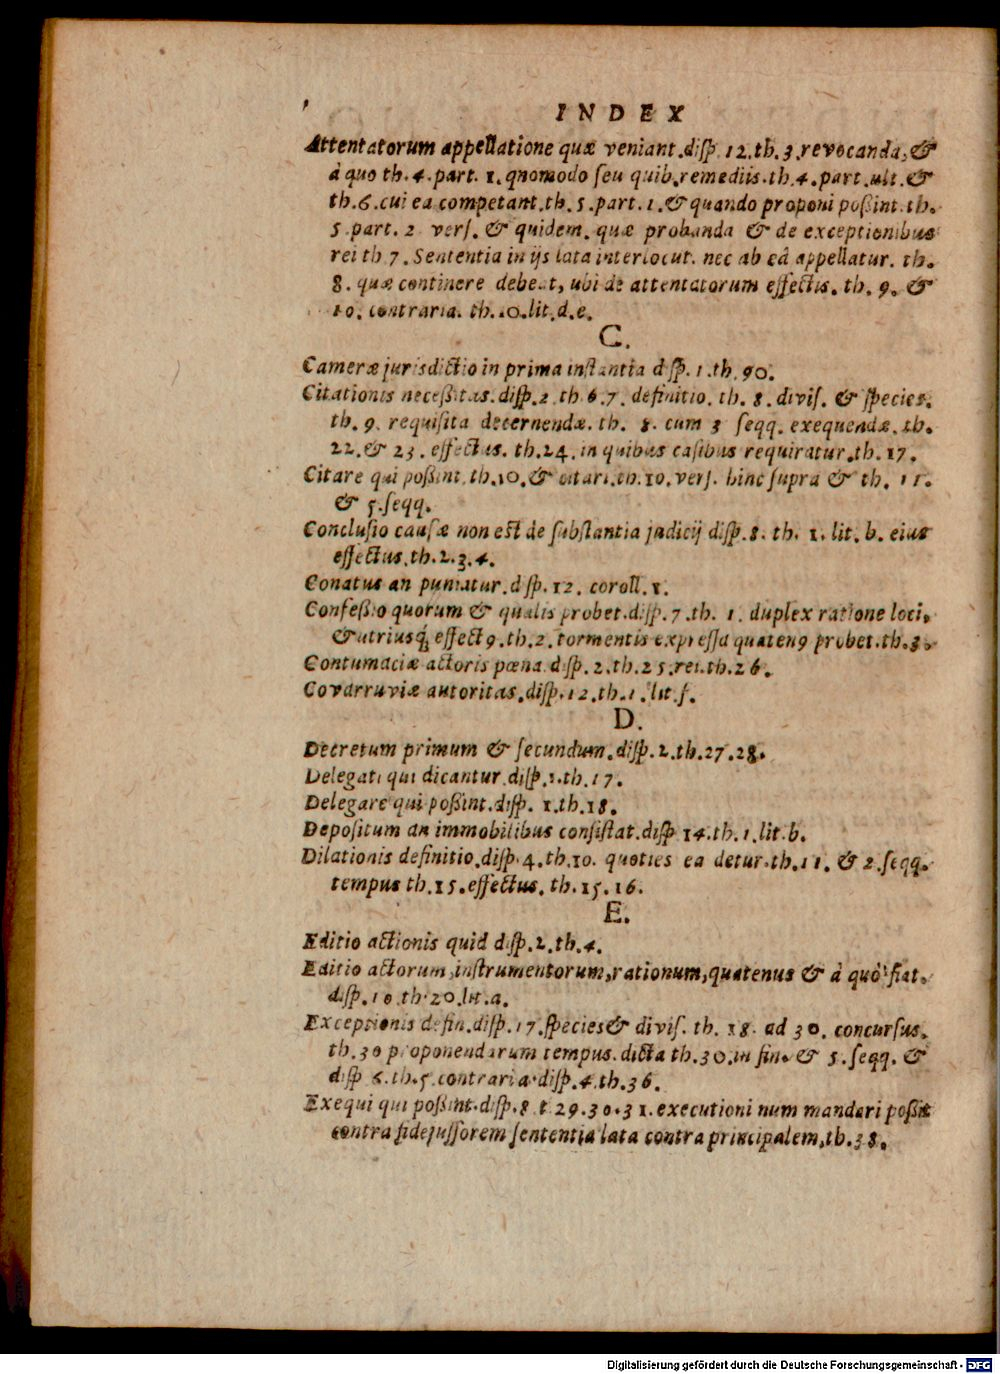 INDEX
Attentatorum appellatione quæ veniant. disp. 12. th. 3. revocanda, &
à quo th. 4. part. 1. qnomodo seu quib. remediis. th. 4. part. ult. &
th. 6. cui ea competant. th. 5. part. 1. & quando proponi poßint. th.
5 part. 2 vers. & quidem. quæ probanda & de exceptionibus
rei th 7. Sententia in ijs lata interlocut. nec ab eâ appellatur. th.
8. quæ continere debeat, ubi de attentatorum effectis. th. 9. &
10. contraria. th. 10. lit. d. e.
C.
Cameræ jurisdictio in prima instantia disp. 1. th. 90.
Citationis neceßitas. disp. 2 th 6. 7. definitio. th. 8. divis. & species.
th. 9. requisita decernendæ. th. 8. cum 3 seqq. exequendæ. th.
22. & 23. effectus. th. 24. in quibus casibus requiratur. th. 17.
Citare qui poßint. th. 10. & citari. th. 10. vers. hinc supra & th. 11.
& 5. seqq.
Conclusio causæ non est de substantia judicij disp. 8. th. 1. lit. b. eius
effectus. th. 2. 3. 4.
Conatus an puniatur. disp. 12. coroll. 1.
Confeßio quorum & qualis probet. disp. 7. th. 1. duplex ratione loci,
& utriusq́; effect9. th. 2. tormentis expressa quaten9 probet. th. 3.
Contumaciæ actoris pœna disp. 2. th. 25. rei. th. 26.
Covarruviæ autoritas. disp. 12. th. 1. lit. f.
D.
Decretum primum & secundum. disp. 2. th. 27. 28.
Delegati qui dicantur disp. 1. th. 17.
Delegare qui poßint. disp. 1. th. 18.
Depositum an immobilibus consistat. disp 14. th. 1. lit. b.
Dilationis definitio. disp. 4. th. 10. quoties ea detur. th. 11. & 2. seqq.
tempus th. 15. effectus. th. 15. 16.
E.
Editio actionis quid disp. 2. th. 4.
Editio actorum, instrumentorum, rationum, quatenus & à quò fiat.
disp. 10 th 20. lit. a.
Exceptionis defin. disp. 17. species & divis. th. 18. ad 30. concursus.
th. 30 proponendarum tempus. dicta th. 30. in fin. & 5. seqq. &
disp 6. th. 5. contraria. disp. 4. th. 36.
Exequi qui poßint. disp. 8 t 29. 30. 31. executioni num mandari poßit
contra fidejussorem sententia lata contra principalem, th. 38.
Digitalisierung gefördert durch die Deutsche Forschungsgemeinschaft - DFG